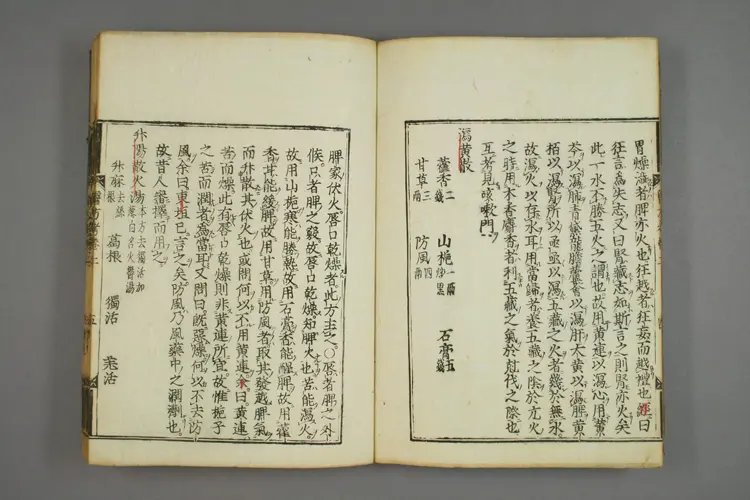 胃燥澁者脾亦火也狂越者狂妄而越禮也經曰
狂言為失志又曰腎藏志如斯言之則腎亦火矣
此一水不勝五火之謂也故用黃連以瀉心用黃
芩以瀉肺青黛龍膽蘆薈以瀉肝大黃以瀉脾黃
栢以瀉腎所以亟亟以瀉五藏之火者幾於無水
故瀉火以存水耳用當歸者養五藏之陰於亢火
之時用木香麝香者利五藏之氣於尅伐之際也
互考見咳嗽門
瀉黃散
藿香 山梔一兩炒黑 石膏五錢
甘草三兩 防風四兩
脾家伏火唇口乾燥者此方主之○唇者脾之外
候口者脾之竅故唇口乾燥知脾火也苦能瀉火
故用山梔寒能勝熱故用石膏香能醒脾故用藿
香甘能緩脾故用甘草用防風者取其發越脾氣
而升散其伏火也或問何以不用黃連余曰黃連
苦而燥此有唇口乾燥則非黃連所宜故惟梔子
之苦而潤者為當耳又問曰既惡燥何以不去防
風余曰東垣已言之矣防風乃風藥中之潤劑也
故昔人審擇而用之
升陽散火湯 本方去獨活加葱白名火鬱湯
升麻 葛根 獨活 羌活